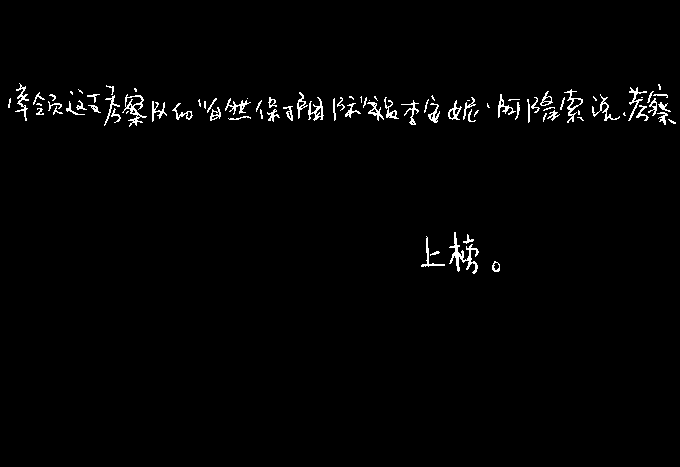 率领这支考察队的“自然保护国际”组织官员李安妮·阿隆索说,考察
上榜。